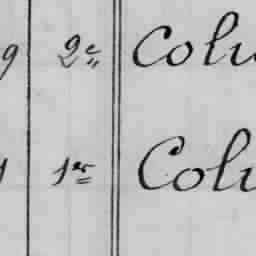 9 2e Colu
1 1er Colu